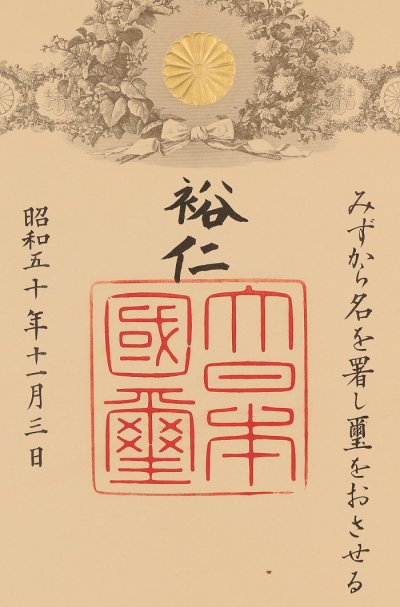 みずから名を署し璽をおさせる
裕仁
大日本
國璽
昭和五十年十一月三日